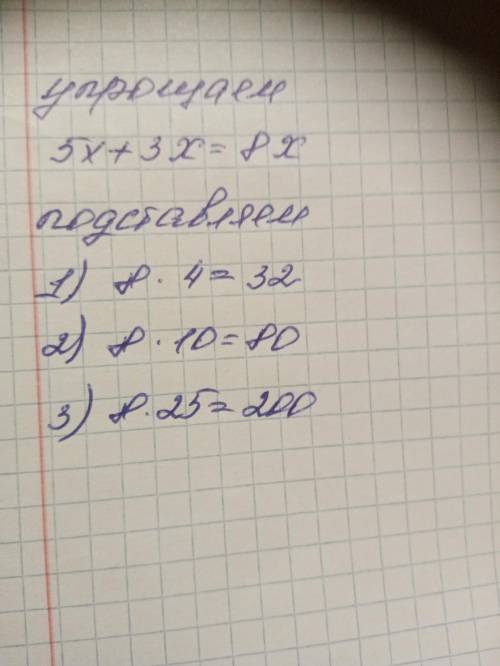 упрощаем
5x+3x=8x
подставляем
1) 8·4=32
2) 8·10=80
3) 8·25=200